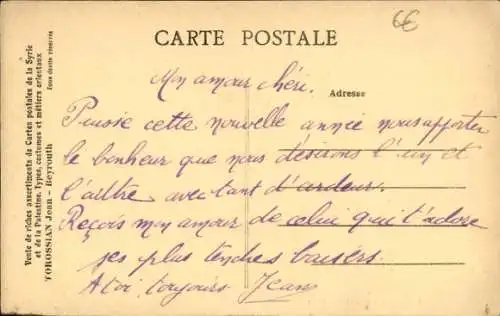 6€
CARTE POSTALE
Mon amour chéri.
Adresse
Puisse cette nouvelle année nous apporter
le bonheur que nous désirons l'un et
l'altre avec tant d'ardeur.
Reçois mon amour de celui qui t'adore
ses plus tendres baisers.
A toi toujours Jean
Vente de riches assortiments de Cartes postales de la Syrie
et de la Palestine, Types, costumes et métiers orientaux
TOROSSIAN Jean - Beyrouth
Tous droits réservés